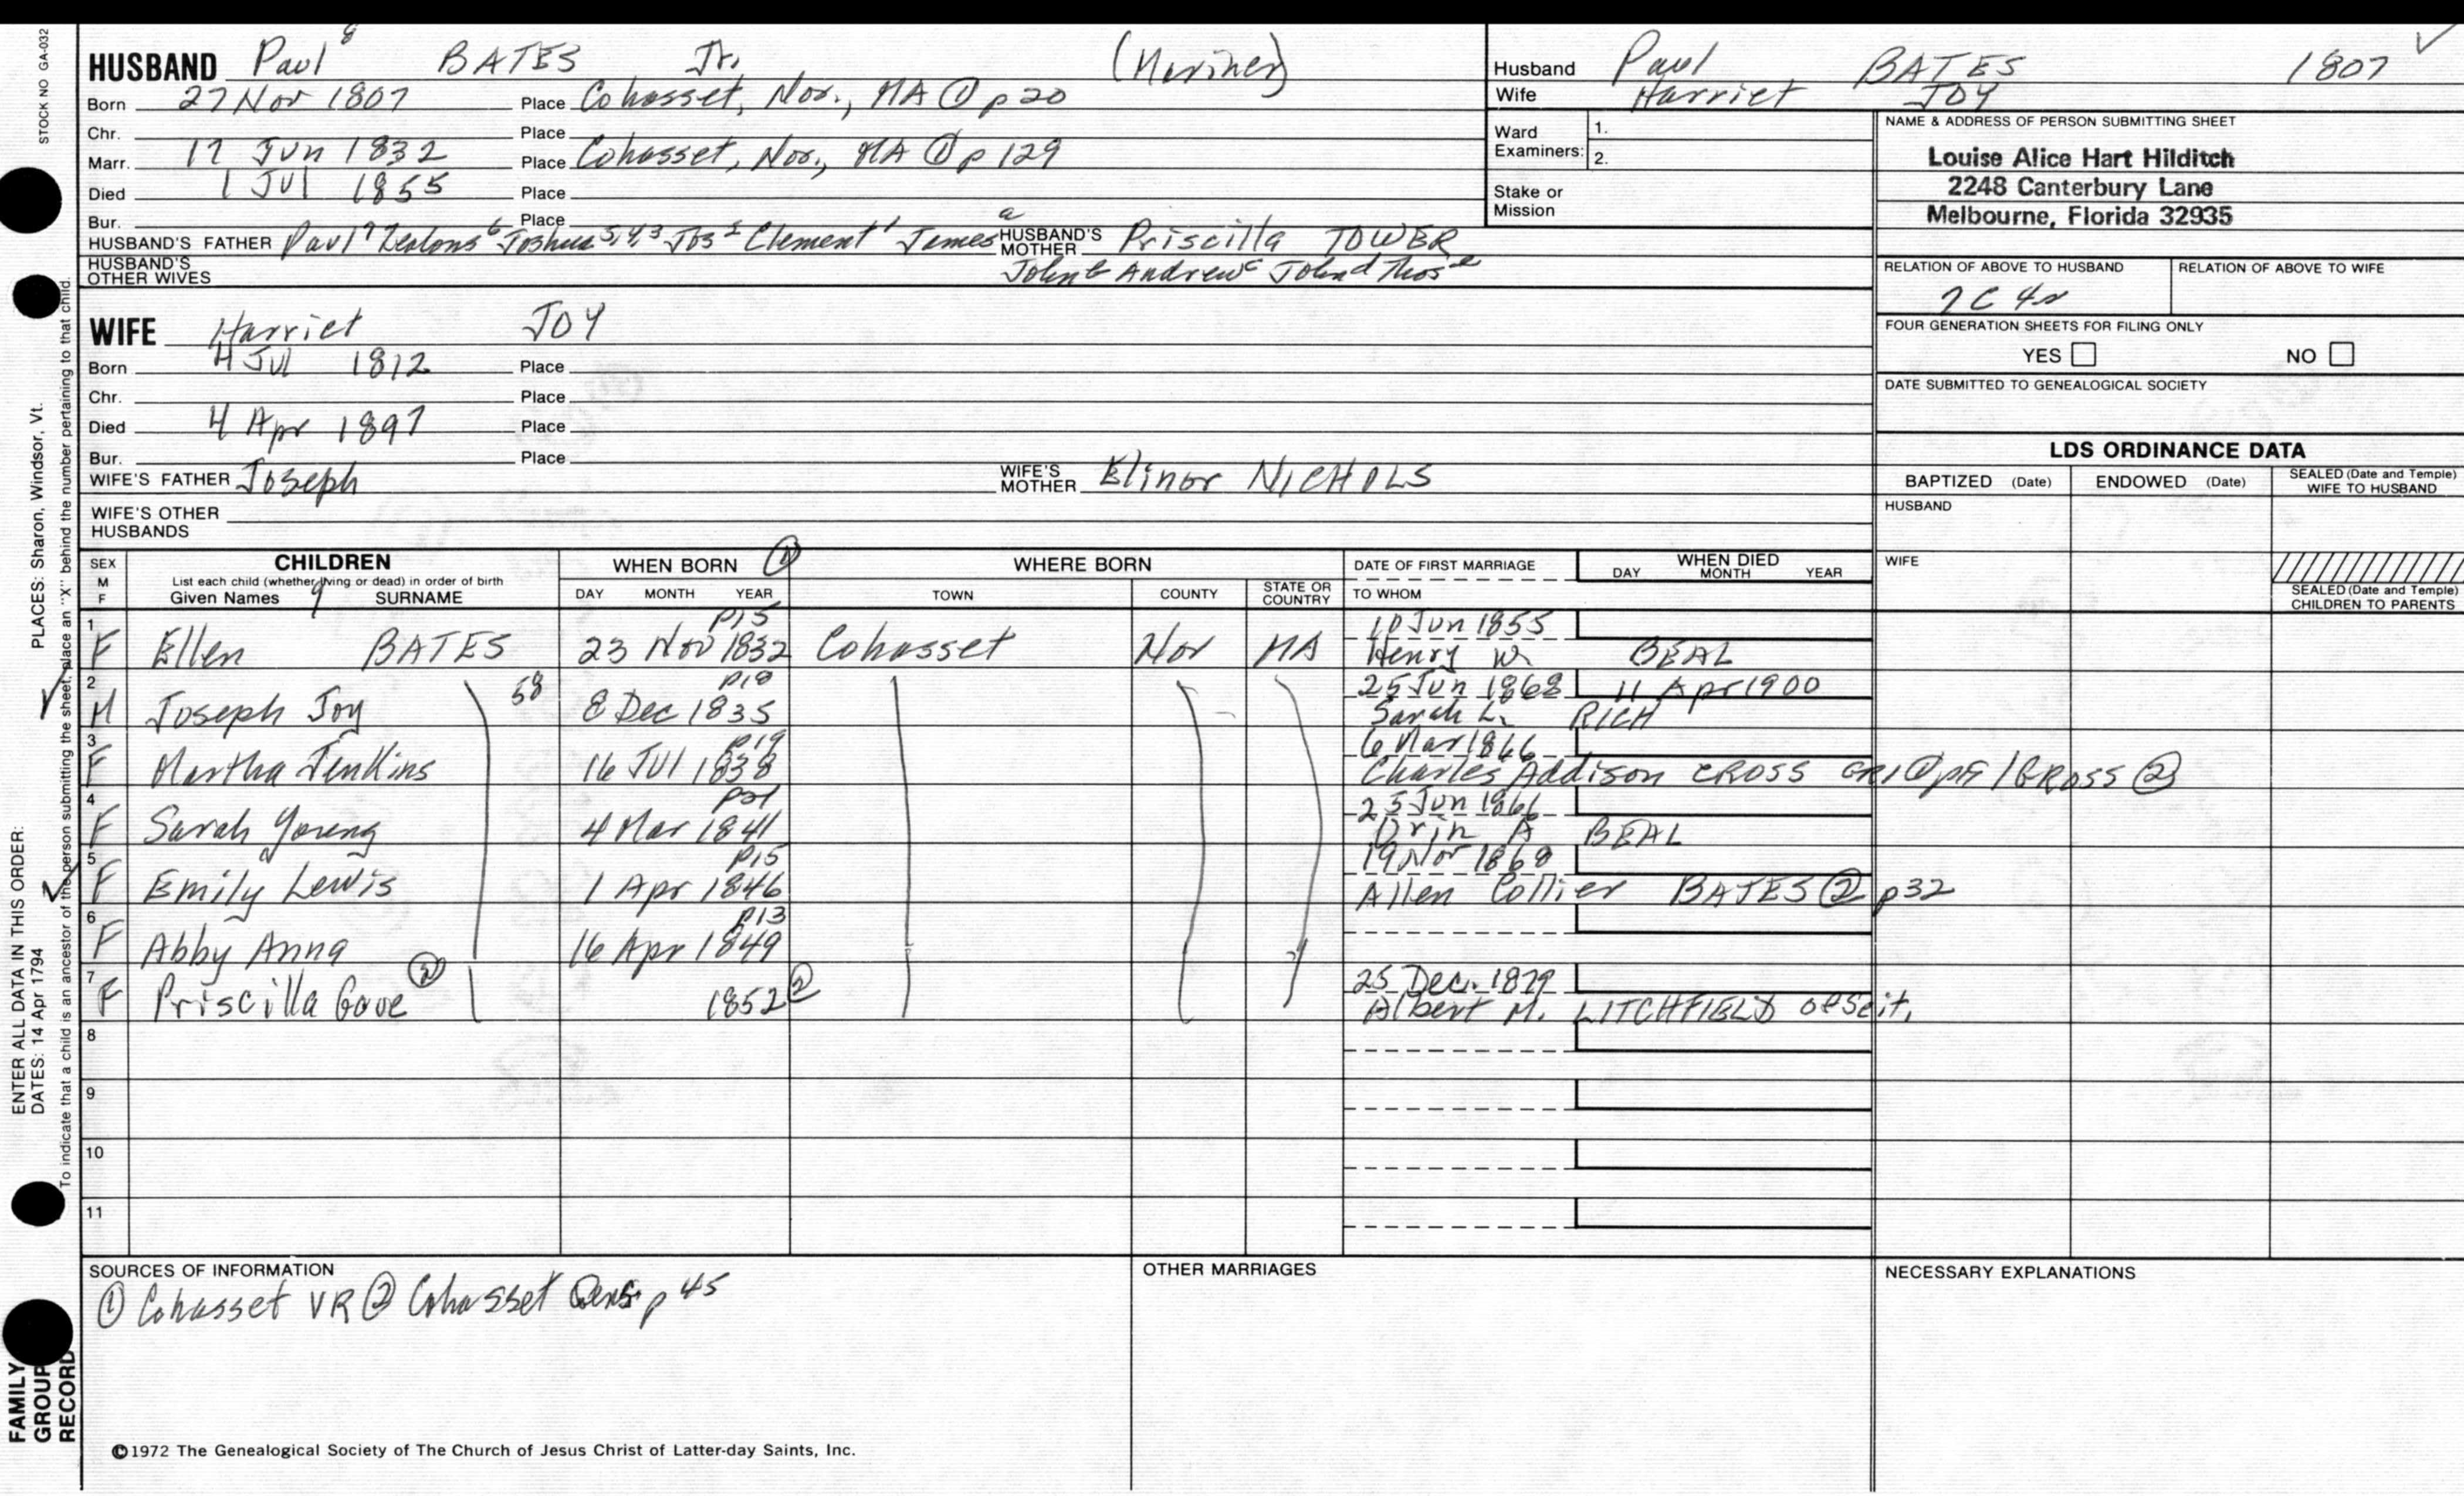 STOCK NO GA-032
HUSBAND Paul 8 BATES Jr. (Mariner)
Born 27 Nov 1807 Place Cohasset, Nor., MA ① p 20
Chr. Place
Marr. 17 Jun 1832 Place Cohasset, Nor., MA ① p 129
Died 1 Jul 1855 Place
Bur. Place
HUSBAND'S FATHER Paul 7 Zealous 6 Joshua 5,4,3 Jos 2 Clement 1 James a HUSBAND'S MOTHER Priscilla TOWER
HUSBAND'S OTHER WIVES John b Andrew c John d Thos e
WIFE Harriet JOY
Born 4 Jul 1812 Place
Chr. Place
Died 4 Apr 1897 Place
Bur. Place
WIFE'S FATHER Joseph WIFE'S MOTHER Elinor NICHOLS
WIFE'S OTHER HUSBANDS
Husband Paul BATES 1807
Wife Harriet JOY
Ward Examiners: 1.
2.
Stake or Mission
NAME & ADDRESS OF PERSON SUBMITTING SHEET
Louise Alice Hart Hilditch
2248 Canterbury Lane
Melbourne, Florida 32935
RELATION OF ABOVE TO HUSBAND RELATION OF ABOVE TO WIFE
7C 4r
FOUR GENERATION SHEETS FOR FILING ONLY
YES NO
DATE SUBMITTED TO GENEALOGICAL SOCIETY
LDS ORDINANCE DATA
BAPTIZED (Date) ENDOWED (Date) SEALED (Date and Temple) WIFE TO HUSBAND
HUSBAND
WIFE
SEALED (Date and Temple) CHILDREN TO PARENTS
SEX M F CHILDREN WHEN BORN ① WHERE BORN DATE OF FIRST MARRIAGE WHEN DIED
List each child (whether living or dead) in order of birth
Given Names 9 SURNAME DAY MONTH YEAR TOWN COUNTY STATE OR COUNTRY TO WHOM DAY MONTH YEAR
1 p15 10 Jun 1855
F Ellen BATES 23 Nov 1832 Cohasset Nor MA Henry W. BEAL
2 58 p18 25 Jun 1868 11 Apr 1900
M Joseph Joy 8 Dec 1835 Sarah L. RICH
3 p19 6 Mar 1866
F Martha Jenkins 16 Jul 1838 Charles Addison CROSS /GROSS ②
4 p21 25 Jun 1866
F Sarah Young 4 Mar 1841 Orin A BEAL
5 p15 19 Nov 1868
F Emily Lewis 1 Apr 1846 Allen Collier BATES ② p32
6 p13
F Abby Anna 16 Apr 1849
7 25 Dec. 1879
F Priscilla Gove ② 1852 ② Albert M. LITCHFIELD of Scit.
8
9
10
11
SOURCES OF INFORMATION
① Cohasset VR ② Cohasset Gens. p 45
OTHER MARRIAGES
NECESSARY EXPLANATIONS
©1972 The Genealogical Society of The Church of Jesus Christ of Latter-day Saints, Inc.
FAMILY GROUP RECORD
ENTER ALL DATA IN THIS ORDER: PLACES: Sharon, Windsor, Vt.
DATES: 14 Apr 1794
To indicate that a child is an ancestor of the person submitting the sheet, place an "X" behind the number pertaining to that child.